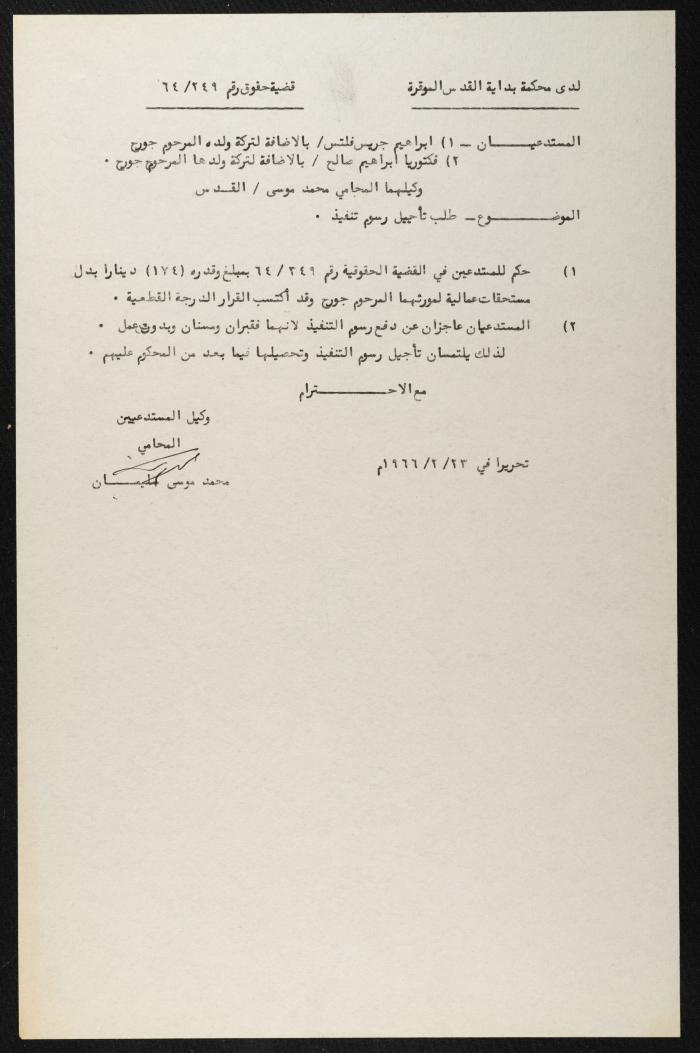 لدى محكمة بداية القدس الموقرة قضية حقوق رقم ٢٤٩/٦٤
المستدعيـــــــان ــ ١) ابراهيم جريس فلتس/ بالاضافة لتركة ولده المرحوم جورج
٢) فكتوريا ابراهيم صالح / بالاضافة لتركة ولدها المرحوم جورج .
وكيلهما المحامي محمد موسى / القــدس
الموضـــــــــــوع ــ طلب تأجيل رسوم تنفيذ .
١) حكم للمستدعين في القضية الحقوقية رقم ٢٤٩/٦٤ بمبلغ وقدره (١٧٤) دينارا بدل
مستحقات عمالية لمورثهما المرحوم جورج وقد أكتسب القرار الدرجة القطعية .
٢) المستدعيان عاجزان عن دفع رسوم التنفيذ لانهما فقيران ومسنان وبدون عمل .
لذلك يلتمسان تأجيل رسوم التنفيذ وتحصيلها فيما بعد من المحكوم عليهم .
مع الاحــــــــــــترام
وكيل المستدعيين
المحامي
تحريرا في ٢٣/٢/١٩٦٦م
محمد موسى